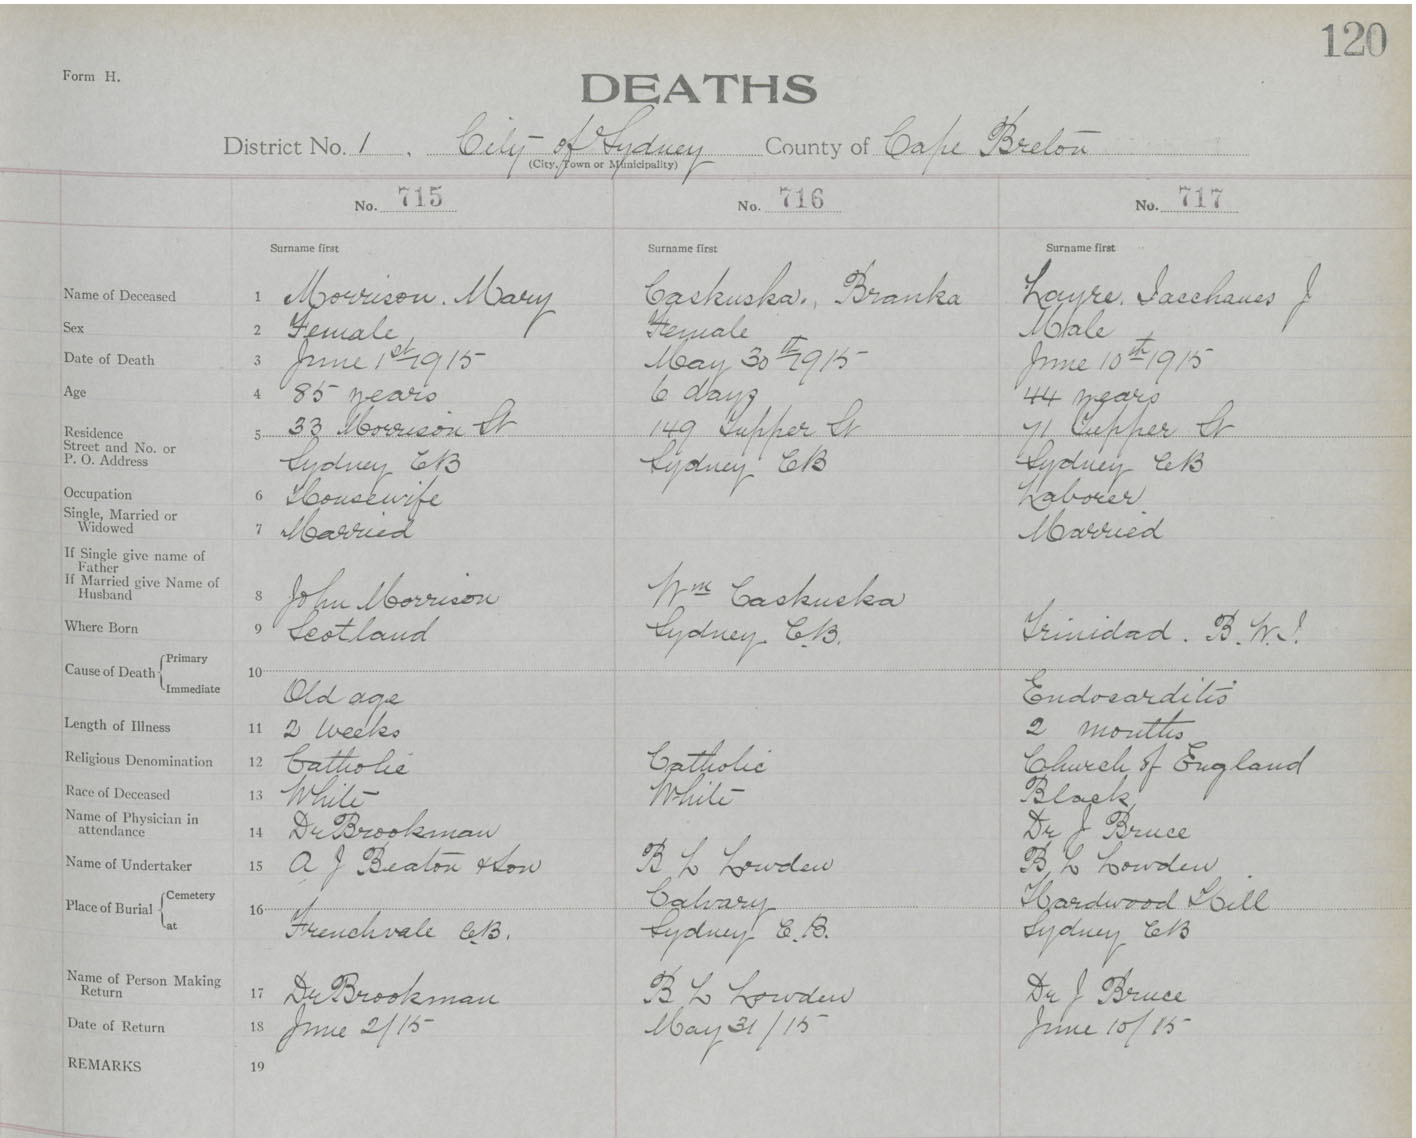 120
Form H.
DEATHS
District No. 1 . City of Sydney County of Cape Breton
(City, Town or Municipality)
No. 715 No. 716 No. 717
Surname first Surname first Surname first
Name of Deceased 1 Morrison. Mary Caskuska., Branka Layre. J
Sex 2 Female Female Male
Date of Death 3 June 1st 1915 May 30th 1915 June 10th 1915
Age 4 85 years 6 days 44 years
Residence 5 33 Morrison St 149 Tupper St 71 Tupper St
Street and No. or
P. O. Address Sydney CB Sydney CB Sydney CB
Occupation 6 Housewife Laborer
Single, Married or
Widowed 7 Married Married
If Single give name of
Father
If Married give Name of
Husband 8 John Morrison Wm Caskuska
Where Born 9 Scotland Sydney C.B. Trinidad. B.W.I.
Cause of Death Primary 10
Immediate Old age Endocarditis
Length of Illness 11 2 weeks 2 months
Religious Denomination 12 Catholic Catholic Church of England
Race of Deceased 13 White White Black
Name of Physician in
attendance 14 Dr Brookman Dr J Bruce
Name of Undertaker 15 A J Beaton & Son B L Lowden B L Lowden
Place of Burial Cemetery 16 Calvary Hardwood Hill
at Frenchvale C.B. Sydney C.B. Sydney CB
Name of Person Making
Return 17 Dr Brookman B L Lowden Dr J Bruce
Date of Return 18 June 2/15 May 31/15 June 10/15
REMARKS 19